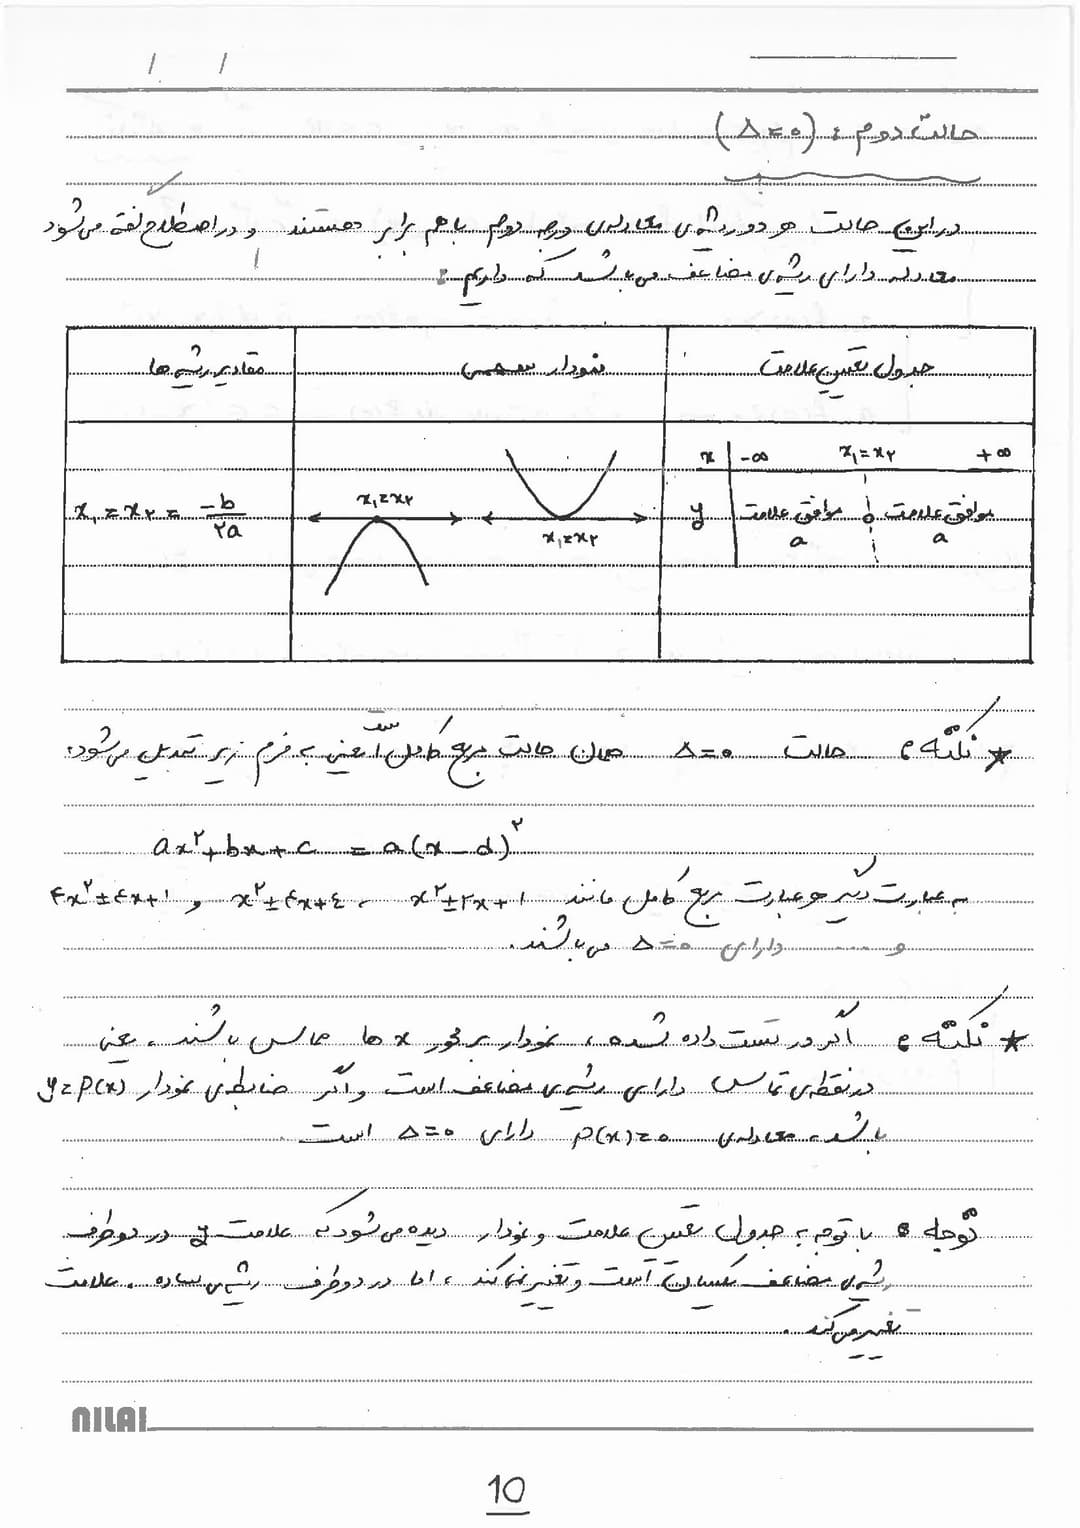 حالت دوم : (Δ=۰)
در این حالت هر دو ریشه‌ی معادله‌ی درجه دوم با هم برابر هستند و در اصطلاح گفته می‌شود
معادله دارای ریشه‌ی مضاعف می‌باشد که داریم :
جدول تعیین علامت
نمودار سهمی
مقادیر ریشه ها
x -∞ x₁=x₂ +∞
y موافق علامت a ۰ موافق علامت a
x₁=x₂
x₁=x₂
x₁=x₂= -b/۲a
* نکته : حالت Δ=۰ همان حالت مربع کامل است یعنی به فرم زیر تبدیل می‌شود:
ax²+bx+c = a(x-d)²
به عبارت دیگر هر عبارت مربع کامل مانند x²±۲x+۱ ، x²±۴x+٤ و ۴x²±۴x+۱
و ..... دارای Δ=۰ می باشند.
* نکته : اگر در تست داده شده ، نمودار بر محور x ها مماس باشند ، یعنی
در نقطه‌ی تماس دارای ریشه‌ی مضاعف است و اگر ضابطه‌ی نمودار y=P(x)
باشد، معادله‌ی P(x)=۰ دارای Δ=۰ است .
توجه : با توجه به جدول تعیین علامت و نمودار دیده می‌شود که علامت y در دو طرف
ریشه‌ی مضاعف یکسان است و تغییر نمی‌کند ، اما در دو طرف ریشه‌ی ساده ، علامت
تغییر می‌کند .
NILAI
10